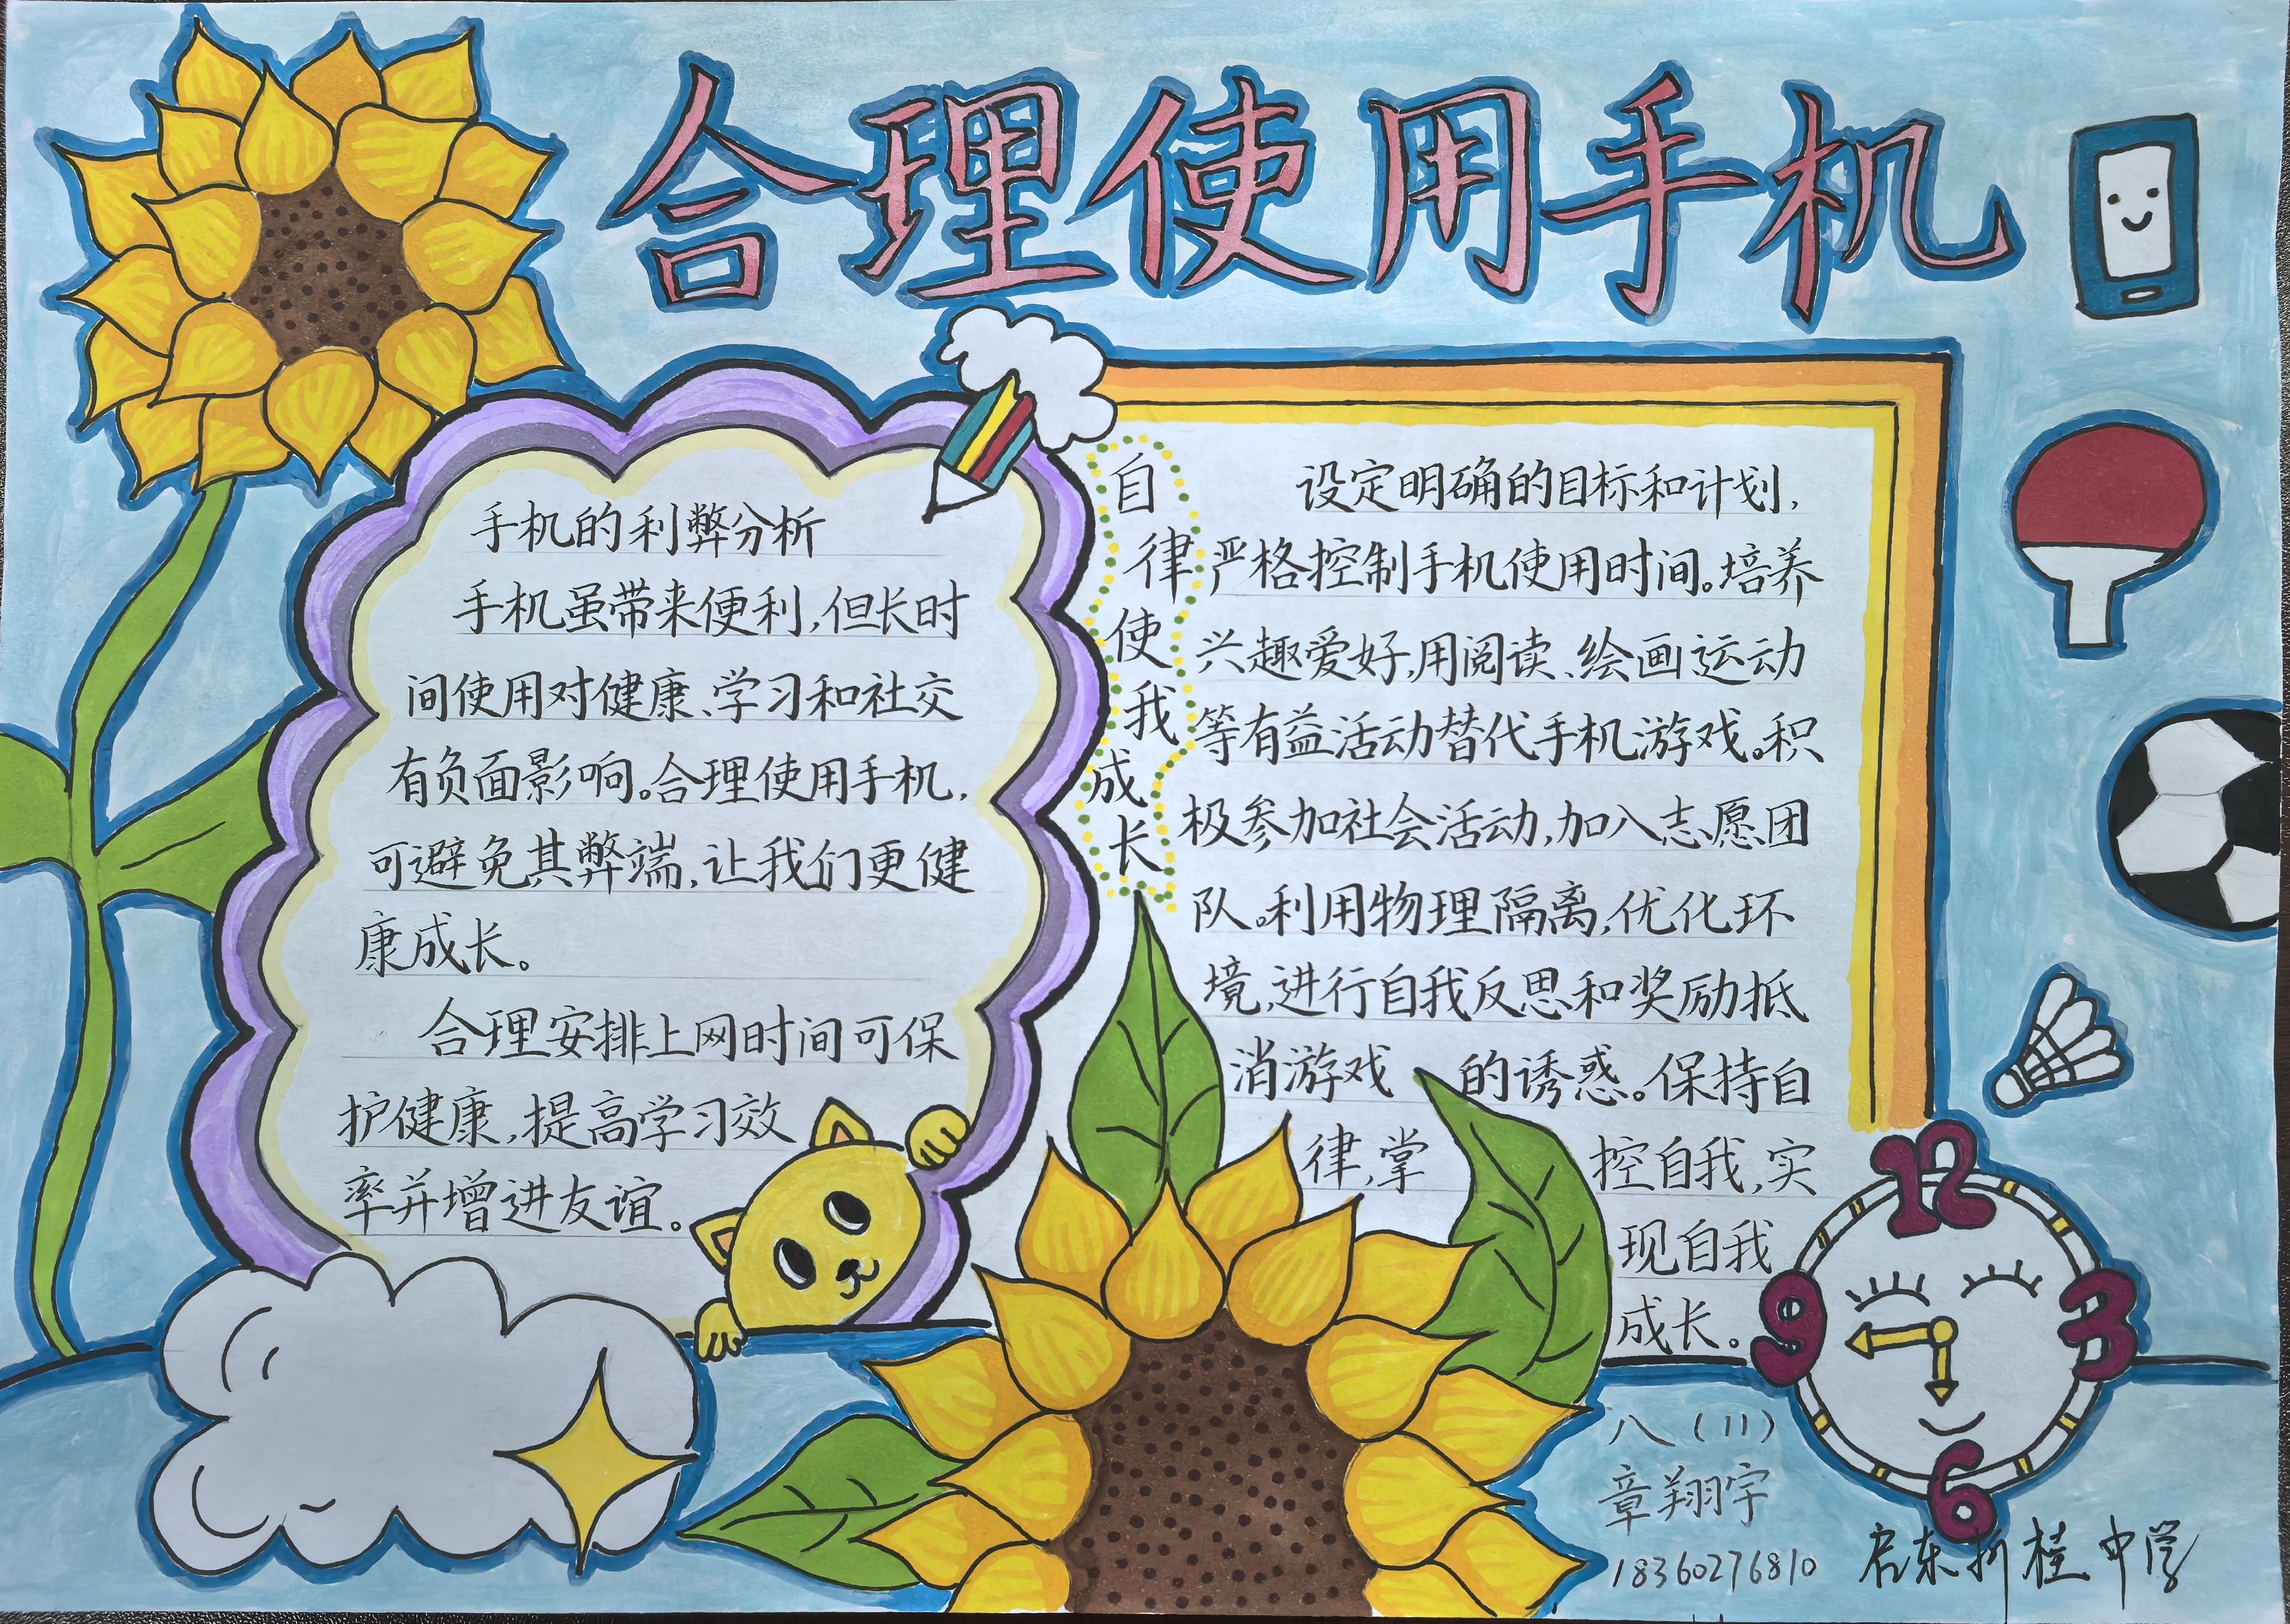 合理使用手机
手机的利弊分析
手机虽带来便利,但长时
间使用对健康、学习和社交
有负面影响。合理使用手机,
可避免其弊端,让我们更健
康成长。
合理安排上网时间可保
护健康,提高学习效
率并增进友谊。
自律使我成长
设定明确的目标和计划,
严格控制手机使用时间。培养
兴趣爱好,用阅读、绘画运动
等有益活动替代手机游戏。积
极参加社会活动,加入志愿团
队。利用物理隔离,优化环
境,进行自我反思和奖励抵
消游戏 的诱惑。保持自
律,掌 控自我,实
现自我
成长。
12
9 3
6
八(11)
章翔宇
18360276810
启东折桂中学